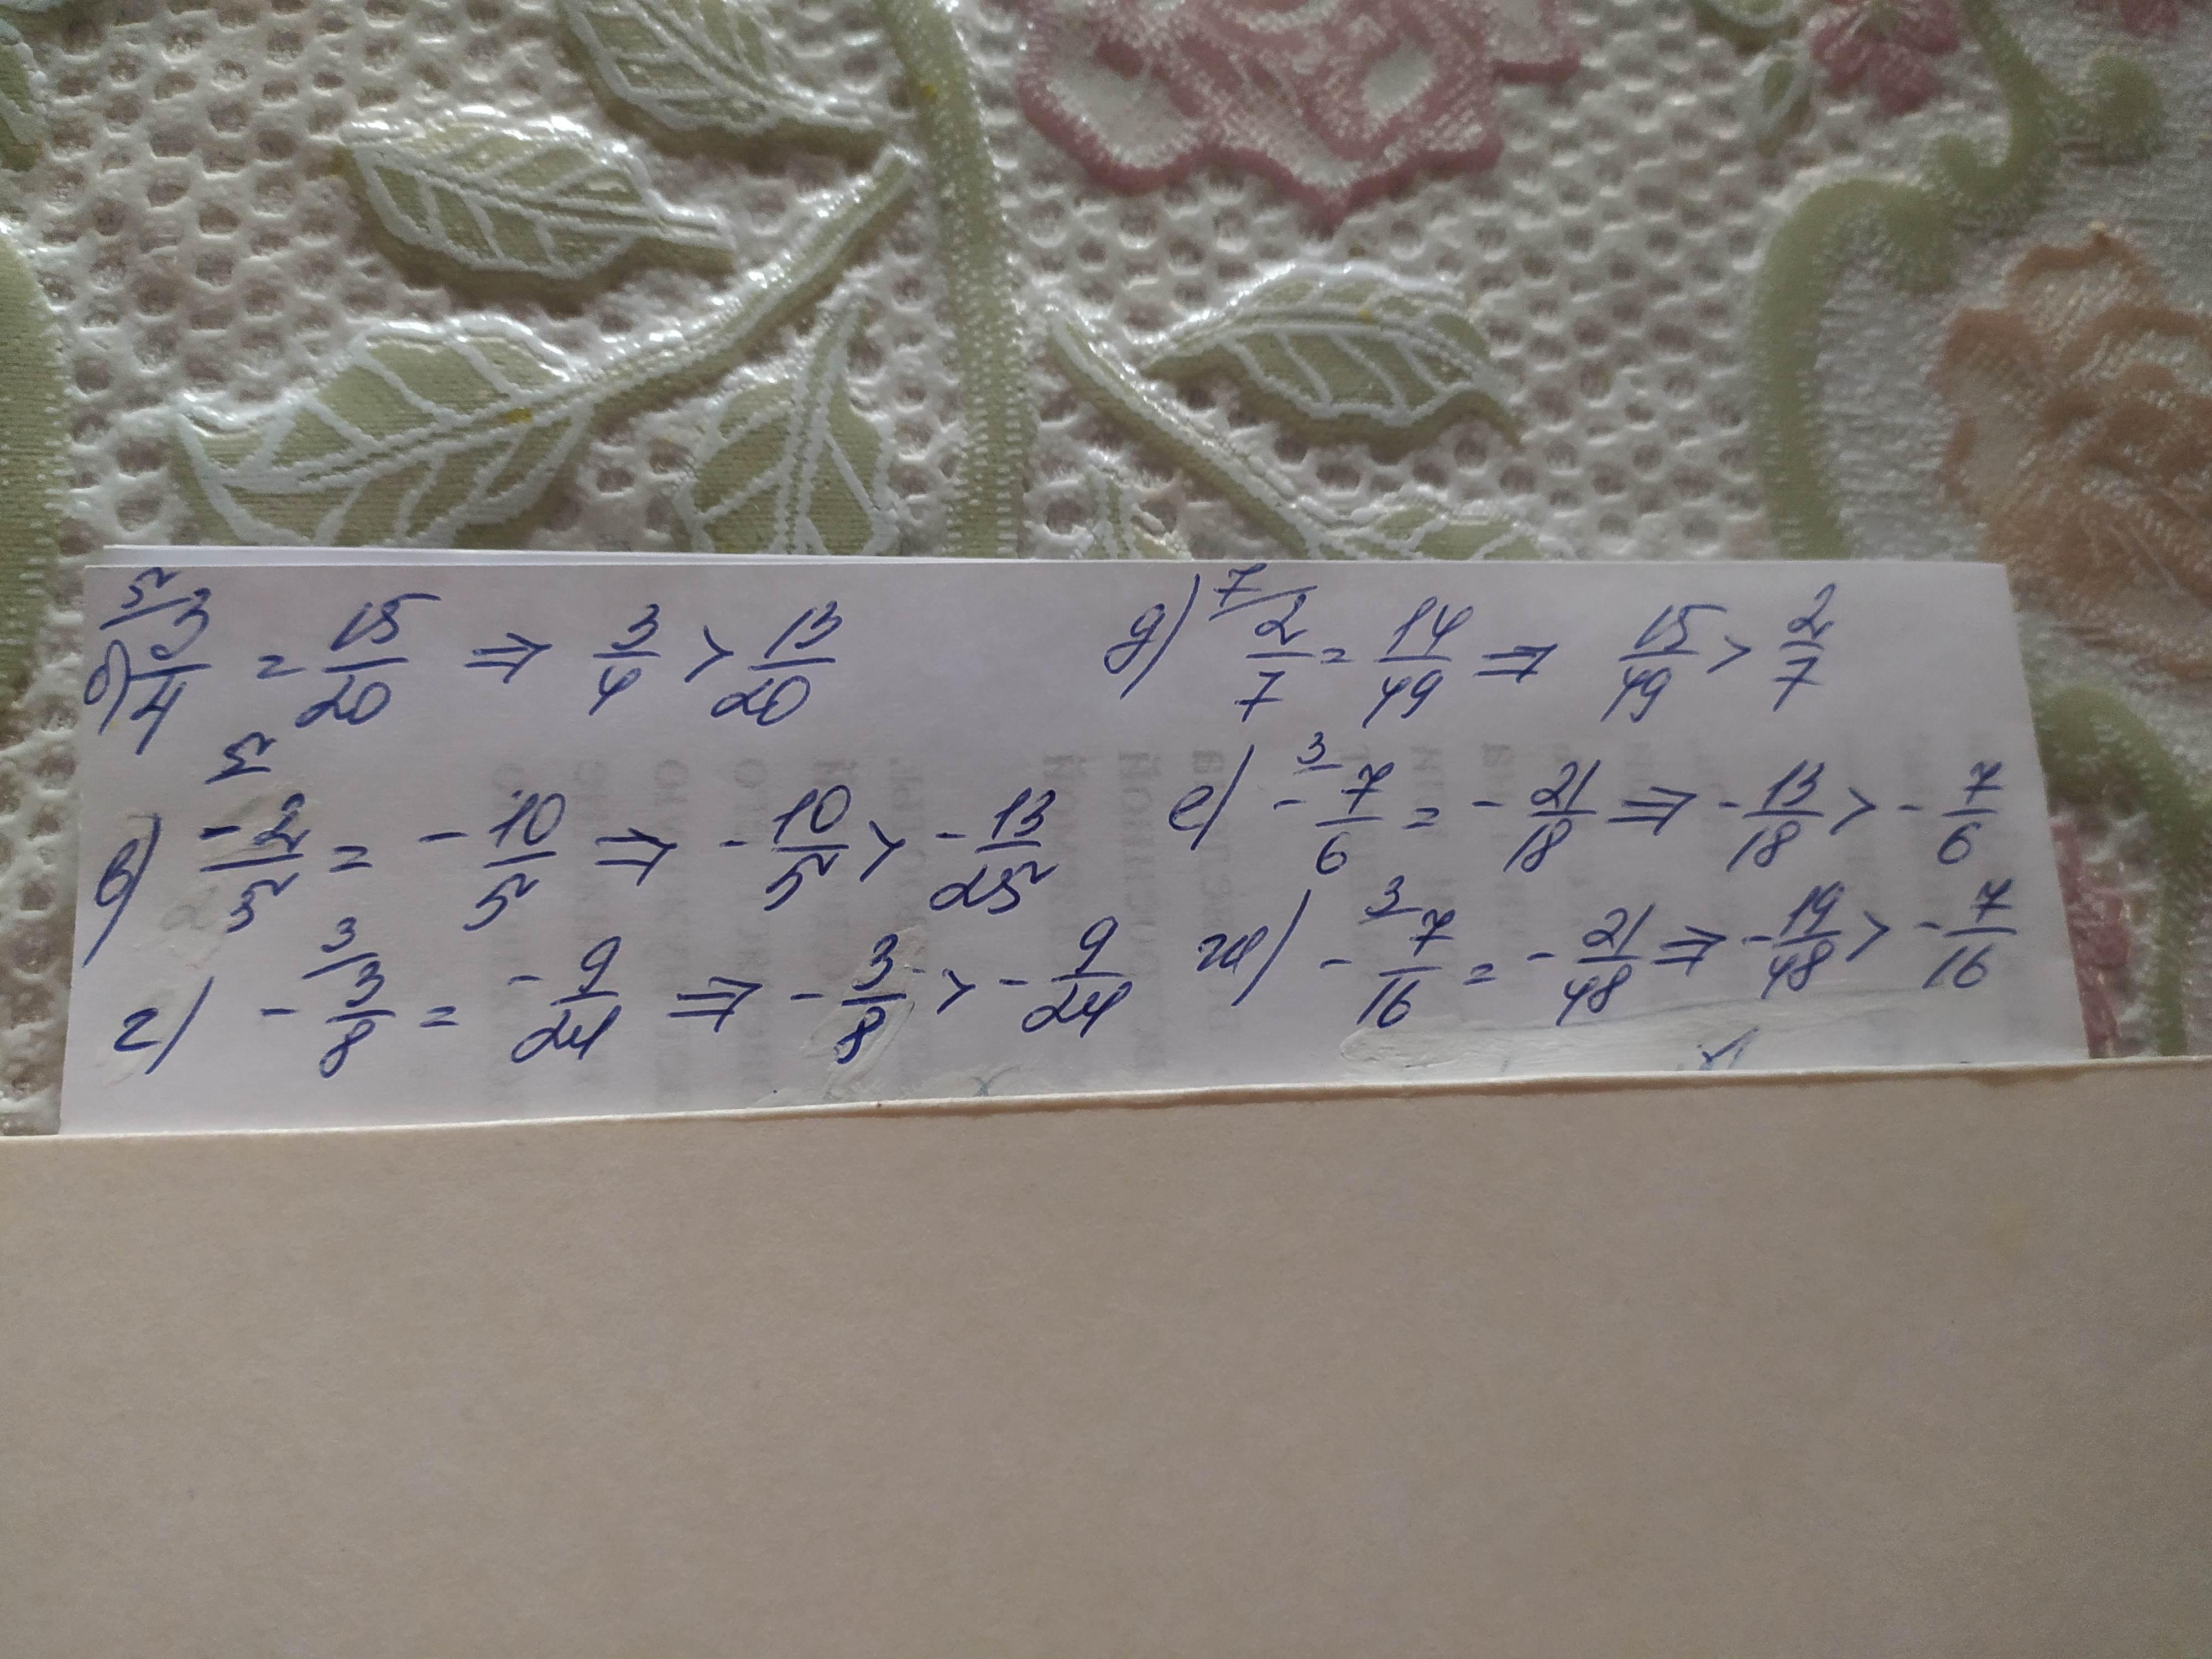 б) 5/ 3/4 = 15/20 ⇒ 3/4 > 13/20
в) 5/ -2/5 = -10/5 ⇒ -10/5 > -13/25
г) 3/ -3/8 = -9/24 ⇒ -3/8 > -9/24
д) 7/ 2/7 = 14/49 ⇒ 15/49 > 2/7
е) 3/ -7/6 = -21/18 ⇒ -13/18 > -7/6
ж) 3/ -7/16 = -21/48 ⇒ -19/48 > -7/16